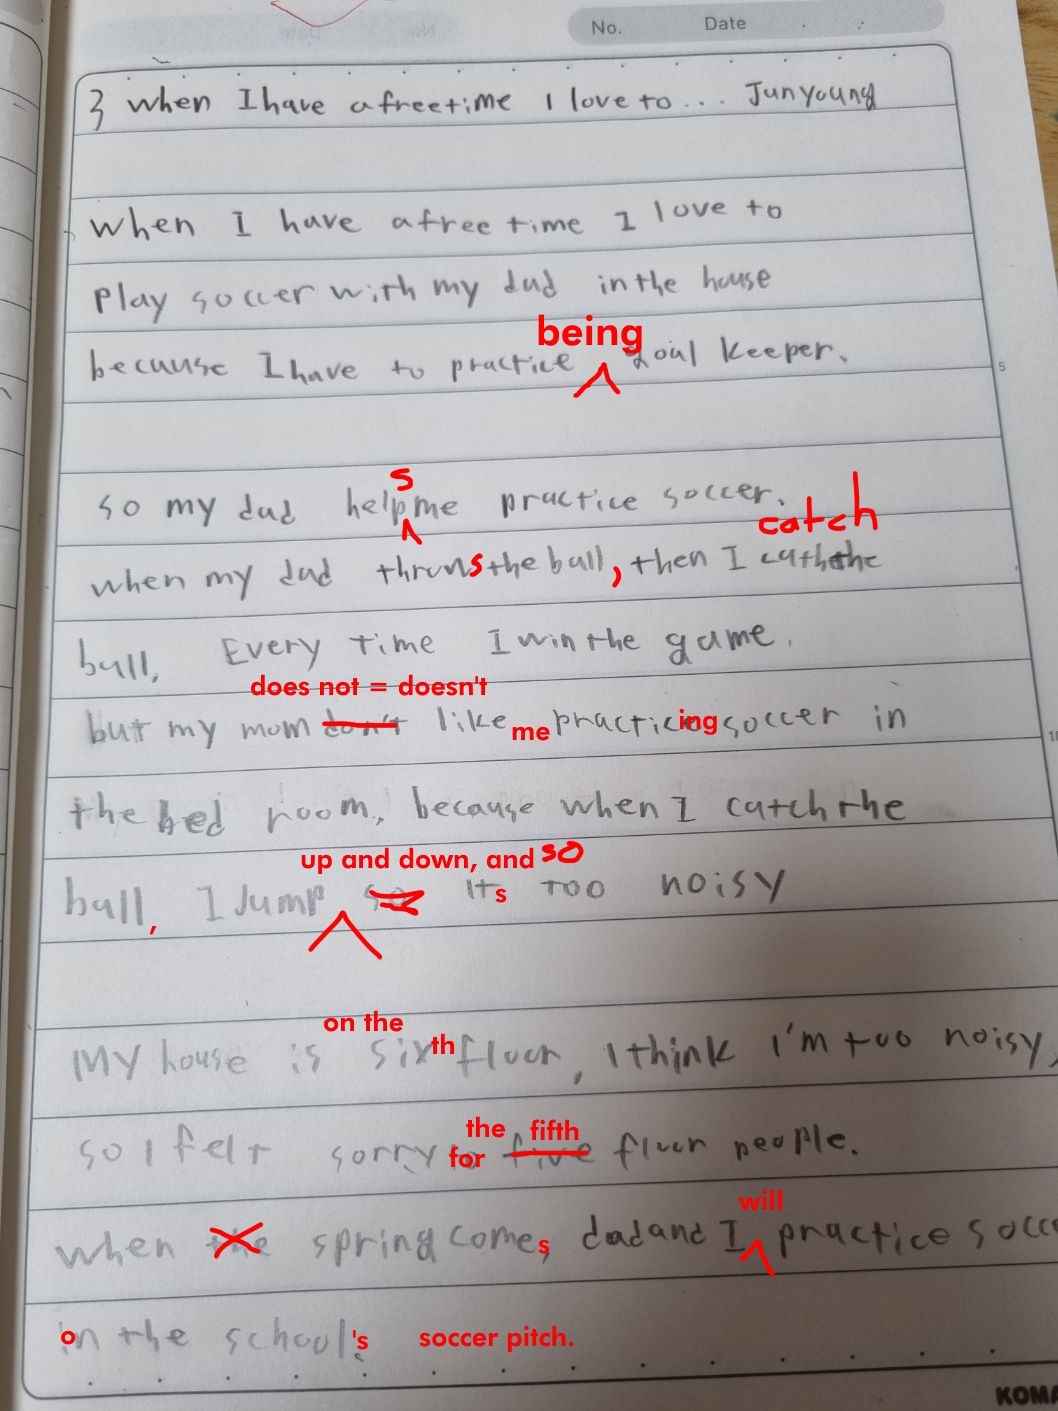 No. Date
3 when I have a free time I love to... Junyoung
when I have a free time I love to
play soccer with my dad in the house
being
because I have to practice goal keeper.
5
s
so my dad help me practice soccer.
catch
when my dad throws the ball, then I cath the
ball. Every time I win the game.
does not = doesn't
but my mom don't like me practicing soccer in
10
the bed room, because when I catch the
up and down, and so
ball, I Jump so its too noisy
on the
My house is sixth floor, I think I'm too noisy,
the fifth
so I felt sorry for five floor people.
will
when the spring comes dad and I practice socc
on the school's soccer pitch.
KOMA